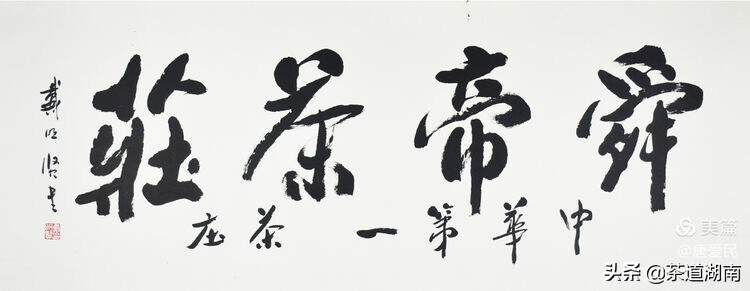 舜帝茶莊
中華第一茶庄
戴明贤书
美篇
@唐爱民
头条 @茶道湖南